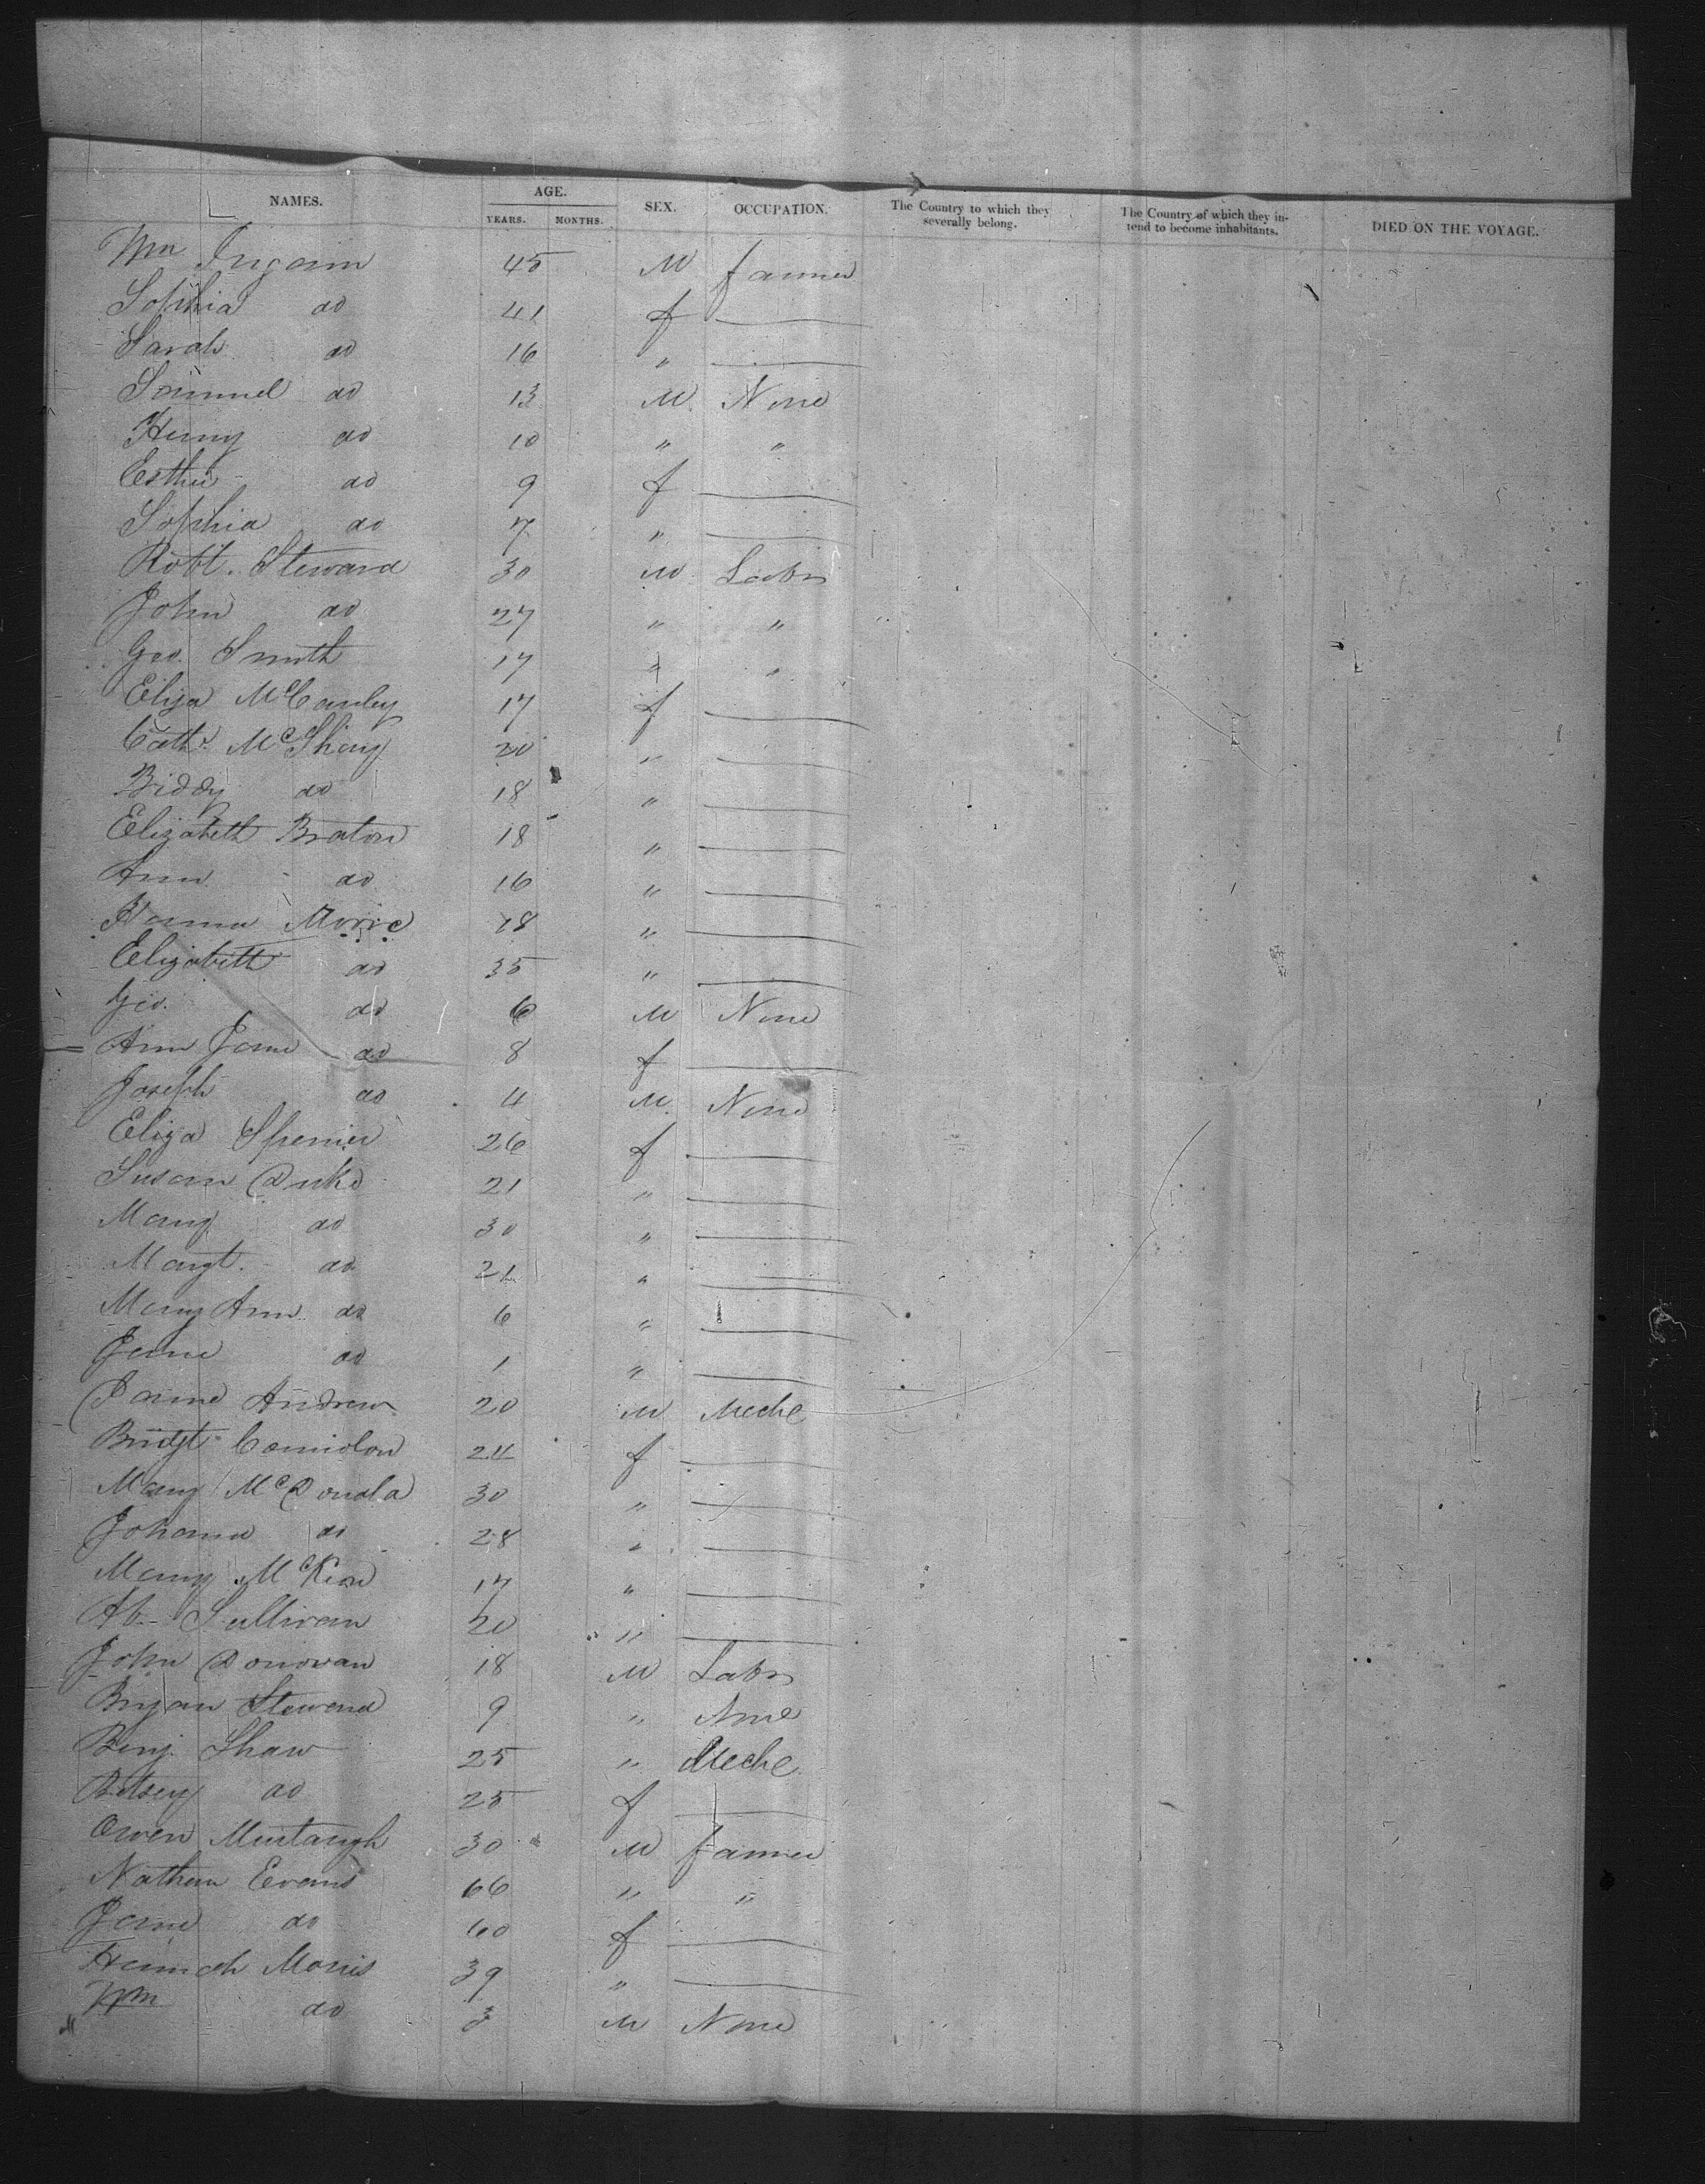 NAMES. AGE. SEX. OCCUPATION. The Country to which they severally belong. The Country of which they intend to become inhabitants. DIED ON THE VOYAGE.
YEARS. MONTHS.
Wm Ingram 45 M farmer
Sophia do 41 f —
Sarah do 16 " —
Samuel do 13 M None
Henry do 10 " "
Esther do 9 f —
Sophia do 7 " —
Robt. Steward 30 M Labr
John do 27 " "
Geo. Smith 17 " "
Eliza McCauley 17 f —
Cath. McShary 20 " —
Biddy do 18 " —
Elizabeth Braton 18 " —
Ann do 16 " —
Hanna Moore 28 " —
Elizabeth do 35 " —
Geo. do 6 M None
Ann Jane do 8 f —
Joseph do 4 M None
Eliza Spenser 26 f —
Susan Duke 21 " —
Mary do 30 " —
Margt. do 21 " —
Mary Ann do 6 " —
Jane do 1 " —
Andrew 20 M Mechc
Bridgt 24 f —
Mary McDonald 30 " —
Johana do 28 " —
Mary McKeon 17 " —
Sullivan 20 " —
John Donovan 18 M Labr
Bryan Steward 9 " None
Benj. Shaw 25 " Mechc
Betsey do 25 f —
Owen Murtaugh 30 M farmer
Nathan Evans 66 " "
Jane do 60 f —
Hannah Morris 39 " —
Wm do 3 M None